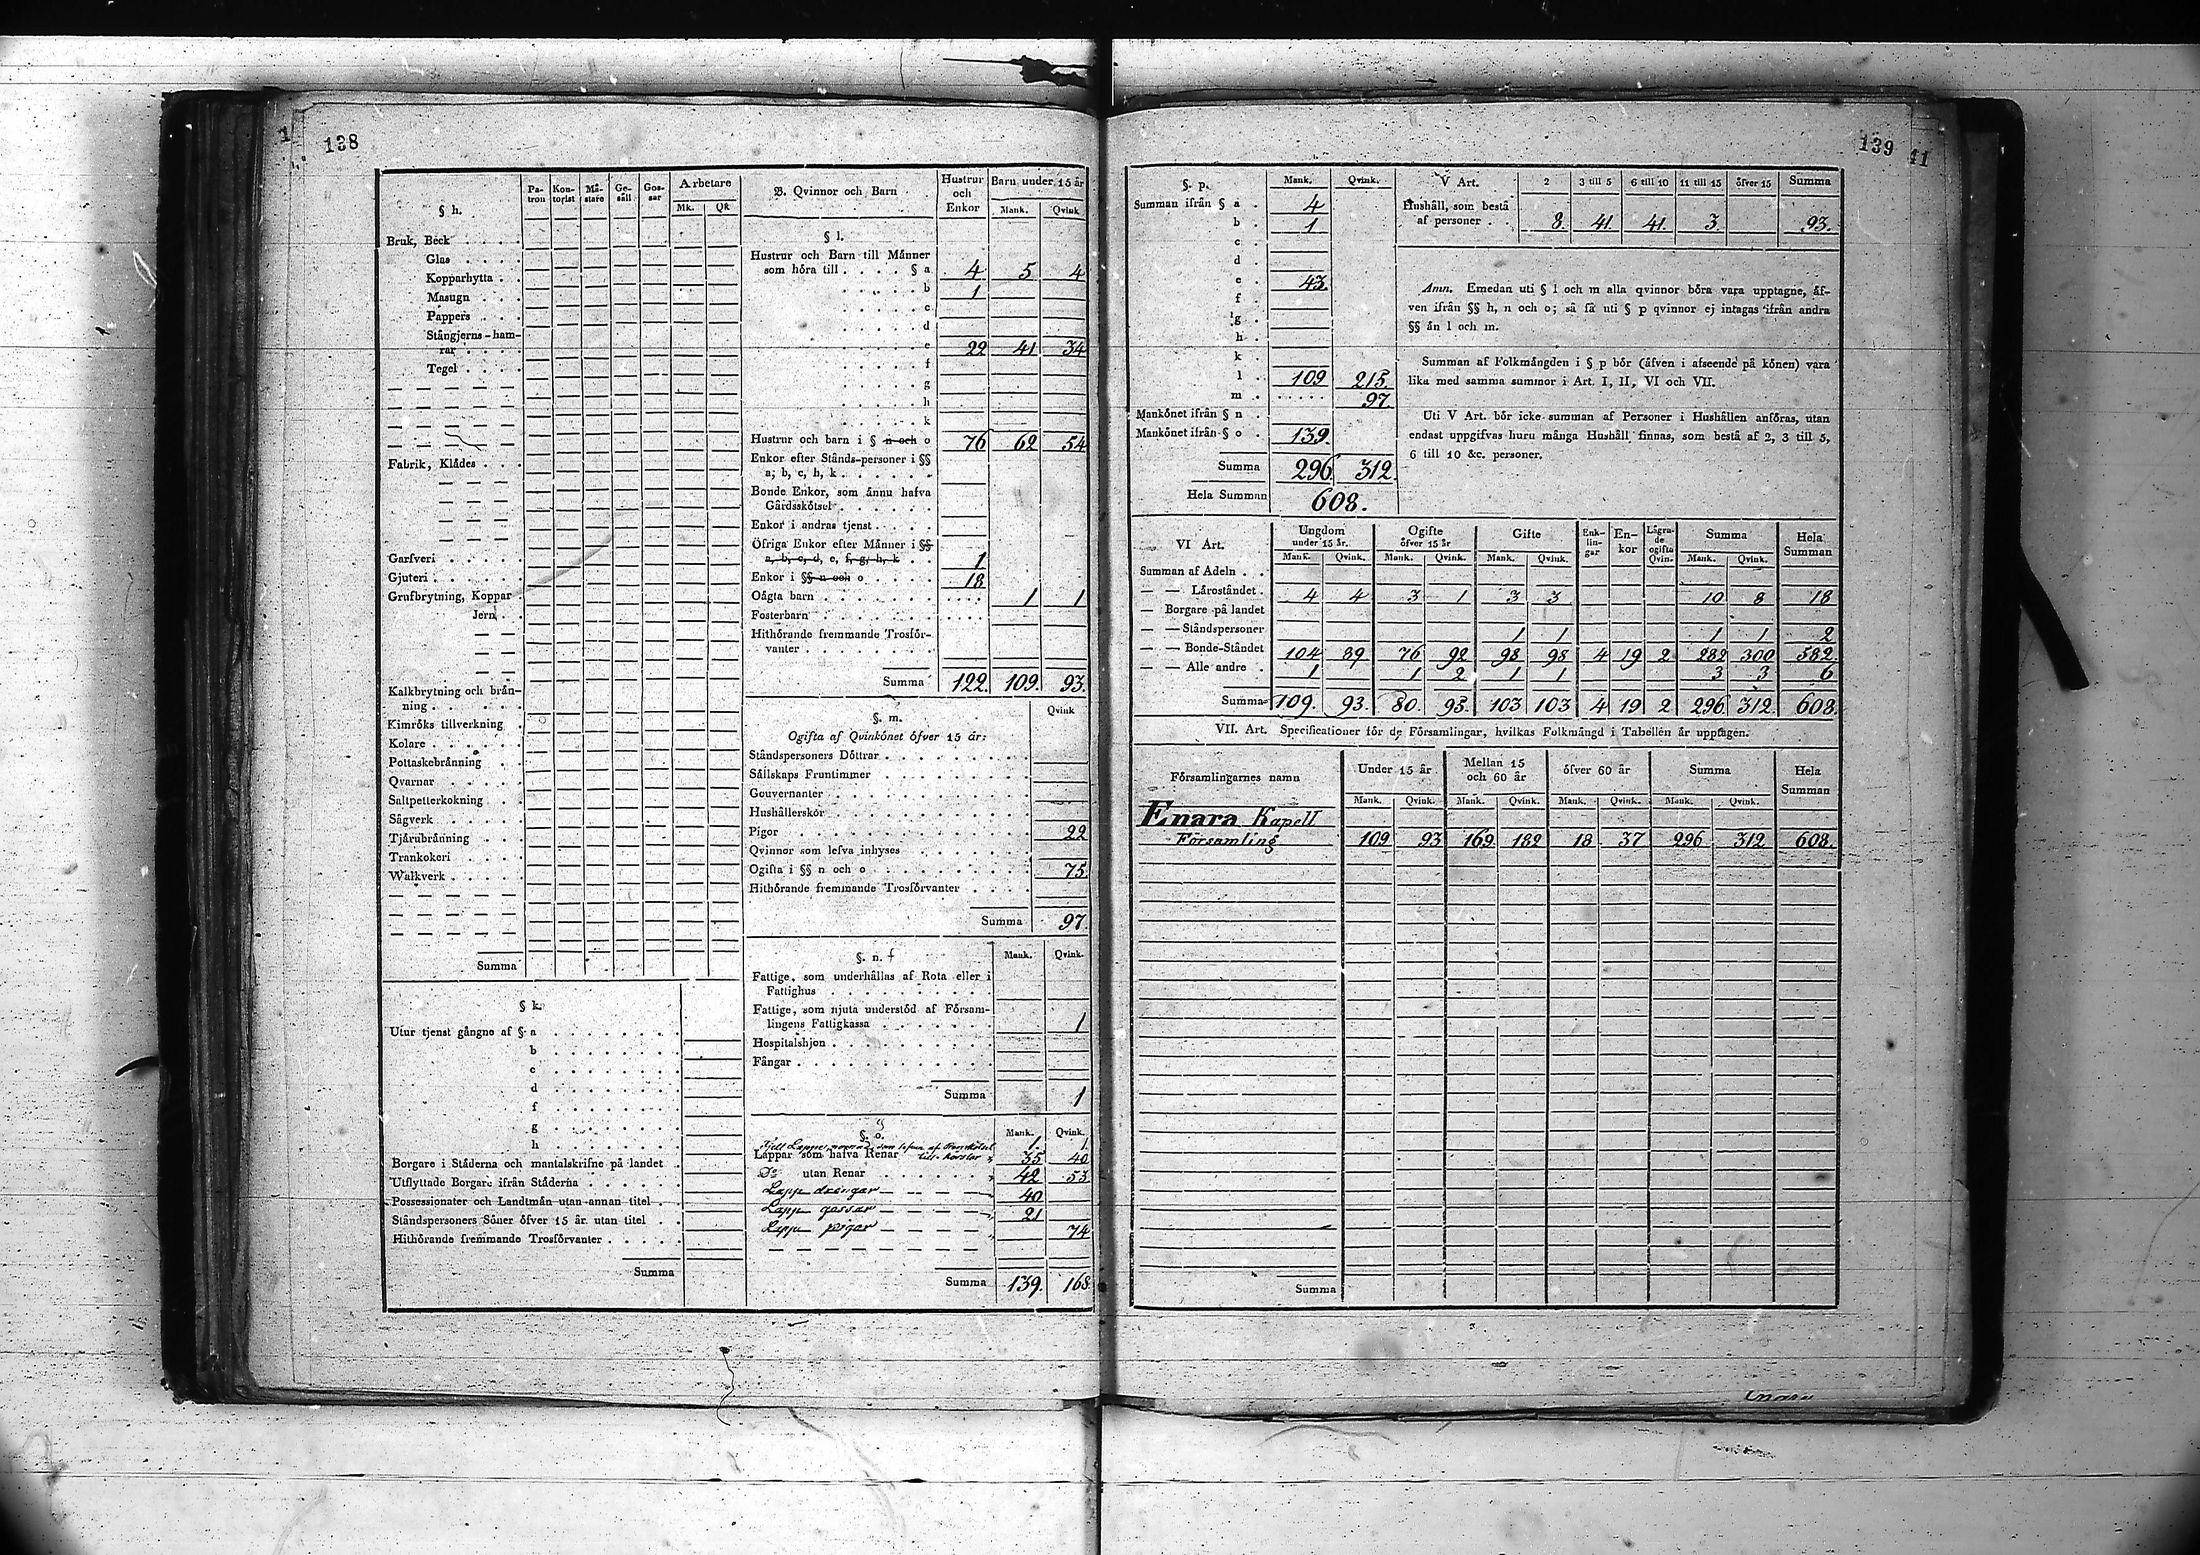 138
§ h.
Pa-tron Kon-torist Må-stare Ge-säll Gos-sar Arbetare
Mk. QK
Bruk, Beck
Glas
Kopparhytta
Masugn
Pappers
Stångjerns-ham-
rar
Tegel
Fabrik, Klådes
Garfveri
Gjuteri
Grufbrytning, Koppar
Jern
Kalkbrytning och brån-
ning
Kimröks tillverkning
Kolare
Pottaskebränning
Qvarnar
Saltpetterkokning
Sågverk
Tjärubränning
Trankokeri
Walkverk
Summa
§ k.
Utur tjenst gångne af § a
b
c
d
f
g
h
Borgare i Städerna och mantalskrifne på landet
Utflyttade Borgare ifrån Städerna
Possessionater och Landtmån utan annan titel
Ståndspersoners Söner öfver 15 år utan titel
Hithörande fremmande Trosförvanter
Summa
B. Qvinnor och Barn Hustrur och Enkor Barn under 15 år
Mank. Qvink
§ l.
Hustrur och Barn till Männer
som höra till § a 4 5 4
b 1
c
d
e 22 41 34
f
g
h
k
Hustrur och barn i § n och o 76 62 54
Enkor efter Stånds-personer i §§
a, b, c, h, k
Bonde Enkor, som ännu hafva
Gårdsskötsel
Enkor i andras tjenst
Öfriga Enkor efter Männer i §§
a, b, c, d, e, f, g, h, k 1
Enkor i §§ n och o 18
Oägta barn 1 1
Fosterbarn
Hithörande fremmande Trosför-
vanter
Summa 122. 109. 93.
§. m. Qvink
Ogifta af Qvinkönet öfver 15 år:
Ståndspersoners Döttrar
Sällskaps Fruntimmer
Gouvernanter
Hushållerskor
Pigor 22
Qvinnor som lefva inhyses
Ogifta i §§ n och o 75.
Hithörande fremmande Trosförvanter
Summa 97.
§. n. Mank. Qvink.
Fattige, som underhållas af Rota eller i
Fattighus
Fattige, som njuta understöd af Försam-
lingens Fattigkassa 1
Hospitalshjon
Fångar
Summa 1
§. o. Mank. Qvink.
Fjell Lappar som lefva af Renskötsel 1 1
Lappar som hafva Renar 35 40
Do utan Renar 42 53
Lapp drängar 40
Lapp gossar 21
Lapp pigor 74
Summa 139. 168
139 41
§. p. Mank. Qvink.
Summan ifrån § a 4
b 1
c
d
e 43
f
g
h
k
l 109 215.
m 97.
Mankönet ifrån § n
Mankönet ifrån § o 139.
Summa 296. 312.
Hela Summan 608.
V Art. 2 3 till 5 6 till 10 11 till 15 öfver 15 Summa
Hushåll, som bestå
af personer 8. 41. 41. 3. 93.
Anm. Emedan uti § l och m alla qvinnor böra vara upptagne, äf-
ven ifrån §§ h, n och o; så få uti § p qvinnor ej intagas ifrån andra
§§ än l och m.
Summan af Folkmängden i § p bör (äfven i afseende på könen) vara
lika med samma summor i Art. I, II, VI och VII.
Uti V Art. bör icke summan af Personer i Hushållen anföras, utan
endast uppgifvas huru många Hushåll finnas, som bestå af 2, 3 till 5,
6 till 10 &c. personer.
VI Art. Ungdom under 15 år. Ogifte öfver 15 år Gifte Enk-lin-gar En-kor Lägra-de ogifta Qvin. Summa Hela Summan
Mank. Qvink. Mank. Qvink. Mank. Qvink. Mank. Qvink.
Summan af Adeln
— — Läroståndet 4 4 3 1 3 3 10 8 18
— Borgare på landet
— — Ståndspersoner 1 1 1 1 2
— — Bonde-Ståndet 104 89 76 92 98 98 4 19 2 282 300 582.
— — Alle andre 1 1 2 1 1 3 3 6
Summa 109. 93. 80. 95. 103 103 4 19 2 296 312. 608.
VII. Art. Specificationer för de Församlingar, hvilkas Folkmängd i Tabellen är upptagen.
Församlingarnes namn Under 15 år Mellan 15 och 60 år öfver 60 år Summa Hela Summan
Mank. Qvink. Mank. Qvink. Mank. Qvink. Mank. Qvink.
Enara Kapell
Församling 109 93 169 182 18 37 296 312 608.
Summa